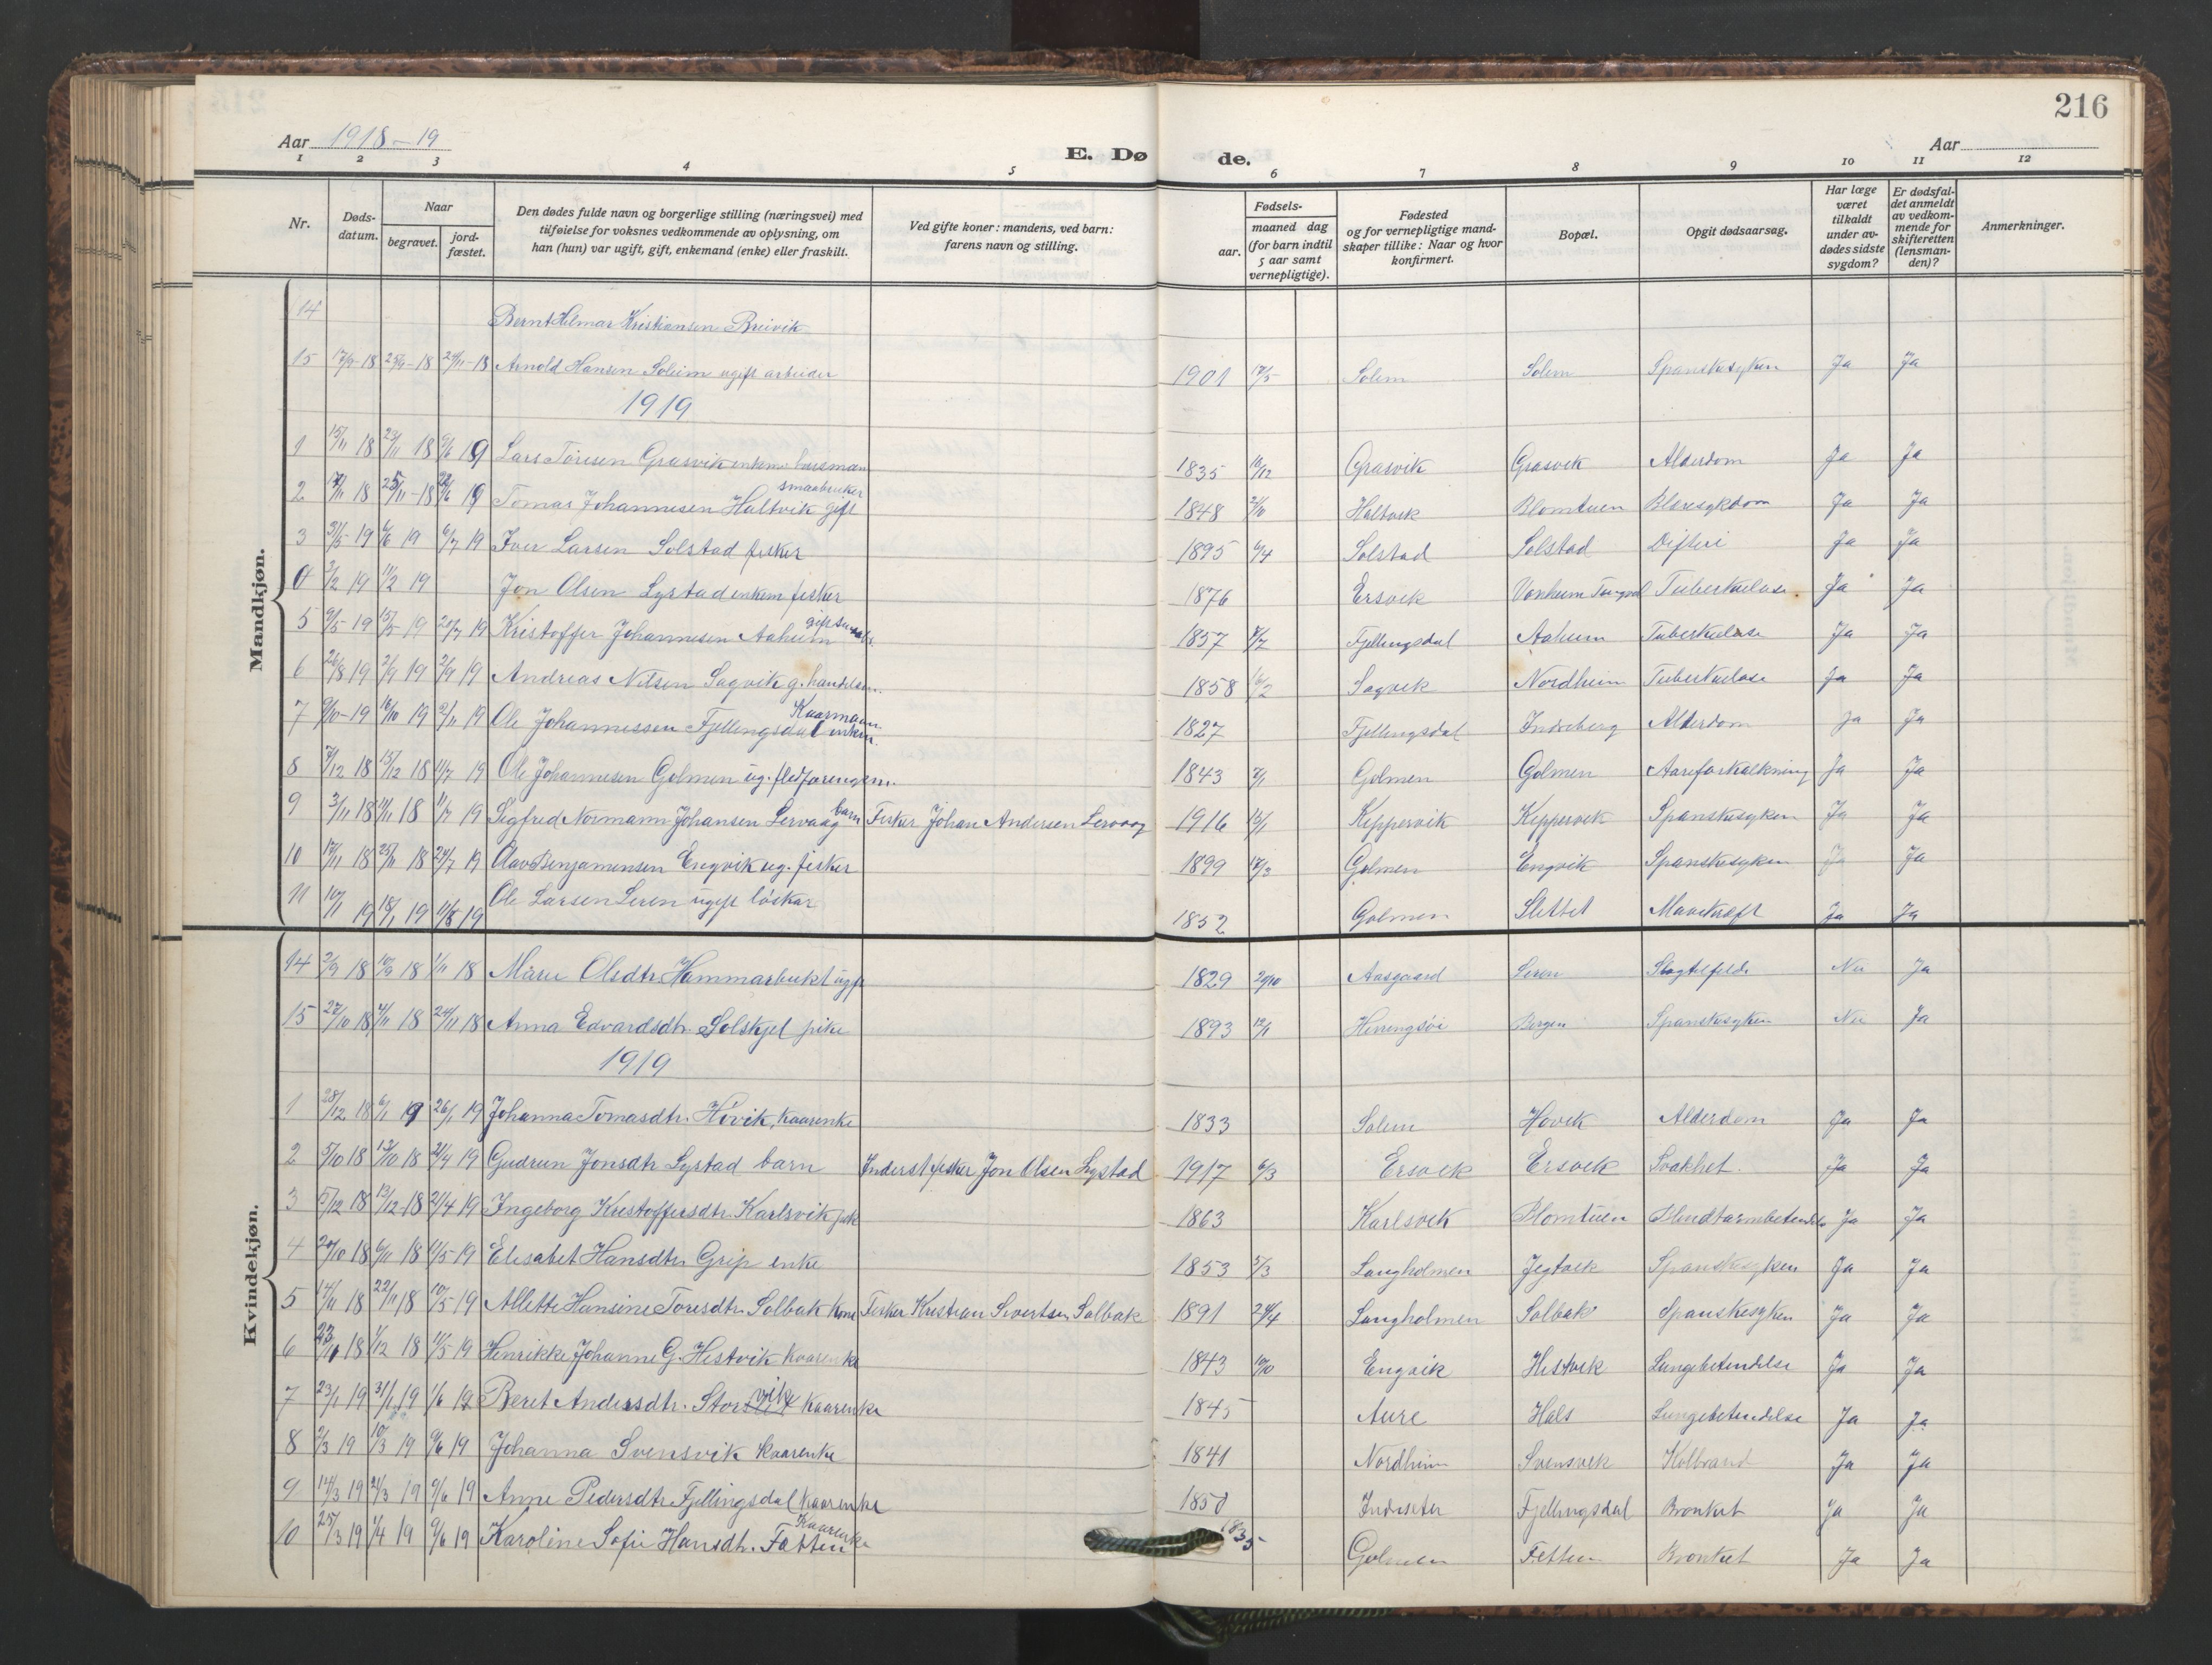 216
Aar 1918-19
E. Dø de.
Aar
1 2 3 4 5 6 7 8 9 10 11 12
Nr.
Døds-datum.
Naar
begravet.
jord-fæstet.
Den dødes fulde navn og borgerlige stilling (næringsvei) med tilføielse for voksnes vedkommende av oplysning, om han (hun) var ugift, gift, enkemand (enke) eller fraskilt.
Ved gifte koner: mandens, ved barn: farens navn og stilling.
Fødsels-
aar.
maaned dag
(for barn indtil 5 aar samt vernepligtige).
Fødested og for vernepligtige mand-skaper tillike: Naar og hvor konfirmert.
Bopæl.
Opgit dødsaarsag.
Har læge været tilkaldt under av-dødes sidste sygdom?
Er dødsfal-det anmeldt av vedkom-mende for skifteretten (lensman-den)?
Anmerkninger.
Mandkjøn.
14 Bernt Hilmar Kristiansen Breivik
15 Arnold Hansen Soleim ugift arbeider 1901 17/5 Solem Solem Spanskesyken Ja Ja
1919
1 15/11 18 23/11 18 9/6 19 Lars Toresen Grasvik enkem. husman 1835 Grasvik Grasvik Alderdom Ja Ja
2 25/11-18 22/6 19 Tomas Johannesen Haltvik gift smaabruker 1848 Haltvik Blomtuen Blæresykdom Ja Ja
3 31/5 19 6/6 19 6/7 19 Iver Larsen Solstad fisker 1895 6/4 Solstad Solstad Difteri Ja Ja
4 3/2 19 11/2 19 Jon Olsen Lystad enkem fisker 1876 Ersvik Tuberkulose Ja Ja
5 9/5 19 15/5 19 20/7 19 Kristoffer Johannesen Aaheim gift 1857 Fjellingsdal Aaheim Tuberkulose Ja Ja
6 26/8 19 2/9 19 2/9 19 Andreas Nilsen Sagvik g. handelsm. 1858 Sagvik Nordheim Tuberkulose Ja Ja
7 9/10-19 16/10 19 2/11 19 Ole Johannessen Fjellingsdal Kaarmann enkem. 1827 Fjellingsdal Indreberg Alderdom Ja Ja
8 15/12 18 19 Ole Johannesen Golmen ug. 1843 Golmen Golmen Aareforkalkning Ja Ja
9 3/11 18 11/11 18 19 Sigfred Normann Johansen Lervaag barn Fisker Johan Andersen Lervaag 1916 15/1 Keppervik Keppervik Spanskesyken Ja Ja
10 17/11 18 25/11 18 24/7 19 Olav Benjaminsen Engvik ug. fisker 1899 17/3 Golmen Engvik Spanskesyken Ja Ja
11 19 18/1 19 19 Ole Larsen Leren ugift løskar 1852 Golmen Slettet Mavekræft Ja Ja
Kvindekjøn.
14 2/9 18 10/9 18 1/11 18 Marie Olsdtr. Hammarbukt ugift 1829 20/10 Aasgaard Leren Slagtilfelde Nei Ja
15 27/10 18 18 24/11 18 Anna Edvardsdtr. Solskjel pike 1893 12/1 Henningsøi Bergen Spanskesyken Nei Ja
1919
1 28/12 18 6/1 19 26/1 19 Johanna Tomasdtr. Høvik, kaarenke 1833 Solem Høvik Alderdom Ja Ja
2 5/10 18 12/10 18 21/4 19 Gudrun Jonsdtr Lystad barn Inderst fisker Jon Olsen Lystad 1917 6/3 Ersvik Ersvik Svakhet. Ja Ja
3 5/12 18 13/12-18 21/4 19 Ingeborg Kristoffersdtr. Karlsvik pike 1863 Karlsvik Blomtuen Blindtarmbetendelse Ja Ja
4 18 6/11 18 11/5 19 Elisabet Hansdtr. Grip enke 1853 5/3 Langholmen Jegtvik Spanskesyken Ja Ja
5 14/11 18 22/11 18 10/5 19 Allette Hansine Toresdtr. Solbak kone Fisker Kristian Sivertsen Solbak 1891 24/4 Langholmen Solbak Spanskesyken Ja Ja
6 18 1/12 18 11/5 19 Henrikke Johanne G. Hestvik kaarenke 1843 Engvik Hestvik Lungebetendelse Ja Ja
7 23/1 19 31/1 19 1/6 19 Beret Andersdtr. Storvik kaarenke 1845 Aure Hals Lungebetendelse Ja Ja
8 2/3 19 10/3 19 9/6 19 Johanna Svensvik kaarenke 1841 Nordheim Svensvik Kolbrand Ja Ja
9 14/3 19 21/3 19 9/6 19 Anne Pedersdtr. Fjellingsdal kaarenke 1850 Indreseter Fjellingsdal Bronkit Ja Ja
10 25/3 19 1/4 19 9/6 19 Karoline Sofie Hansdtr. Fætten kaarenke 1835 Golmen Fetten Bronkit Ja Ja